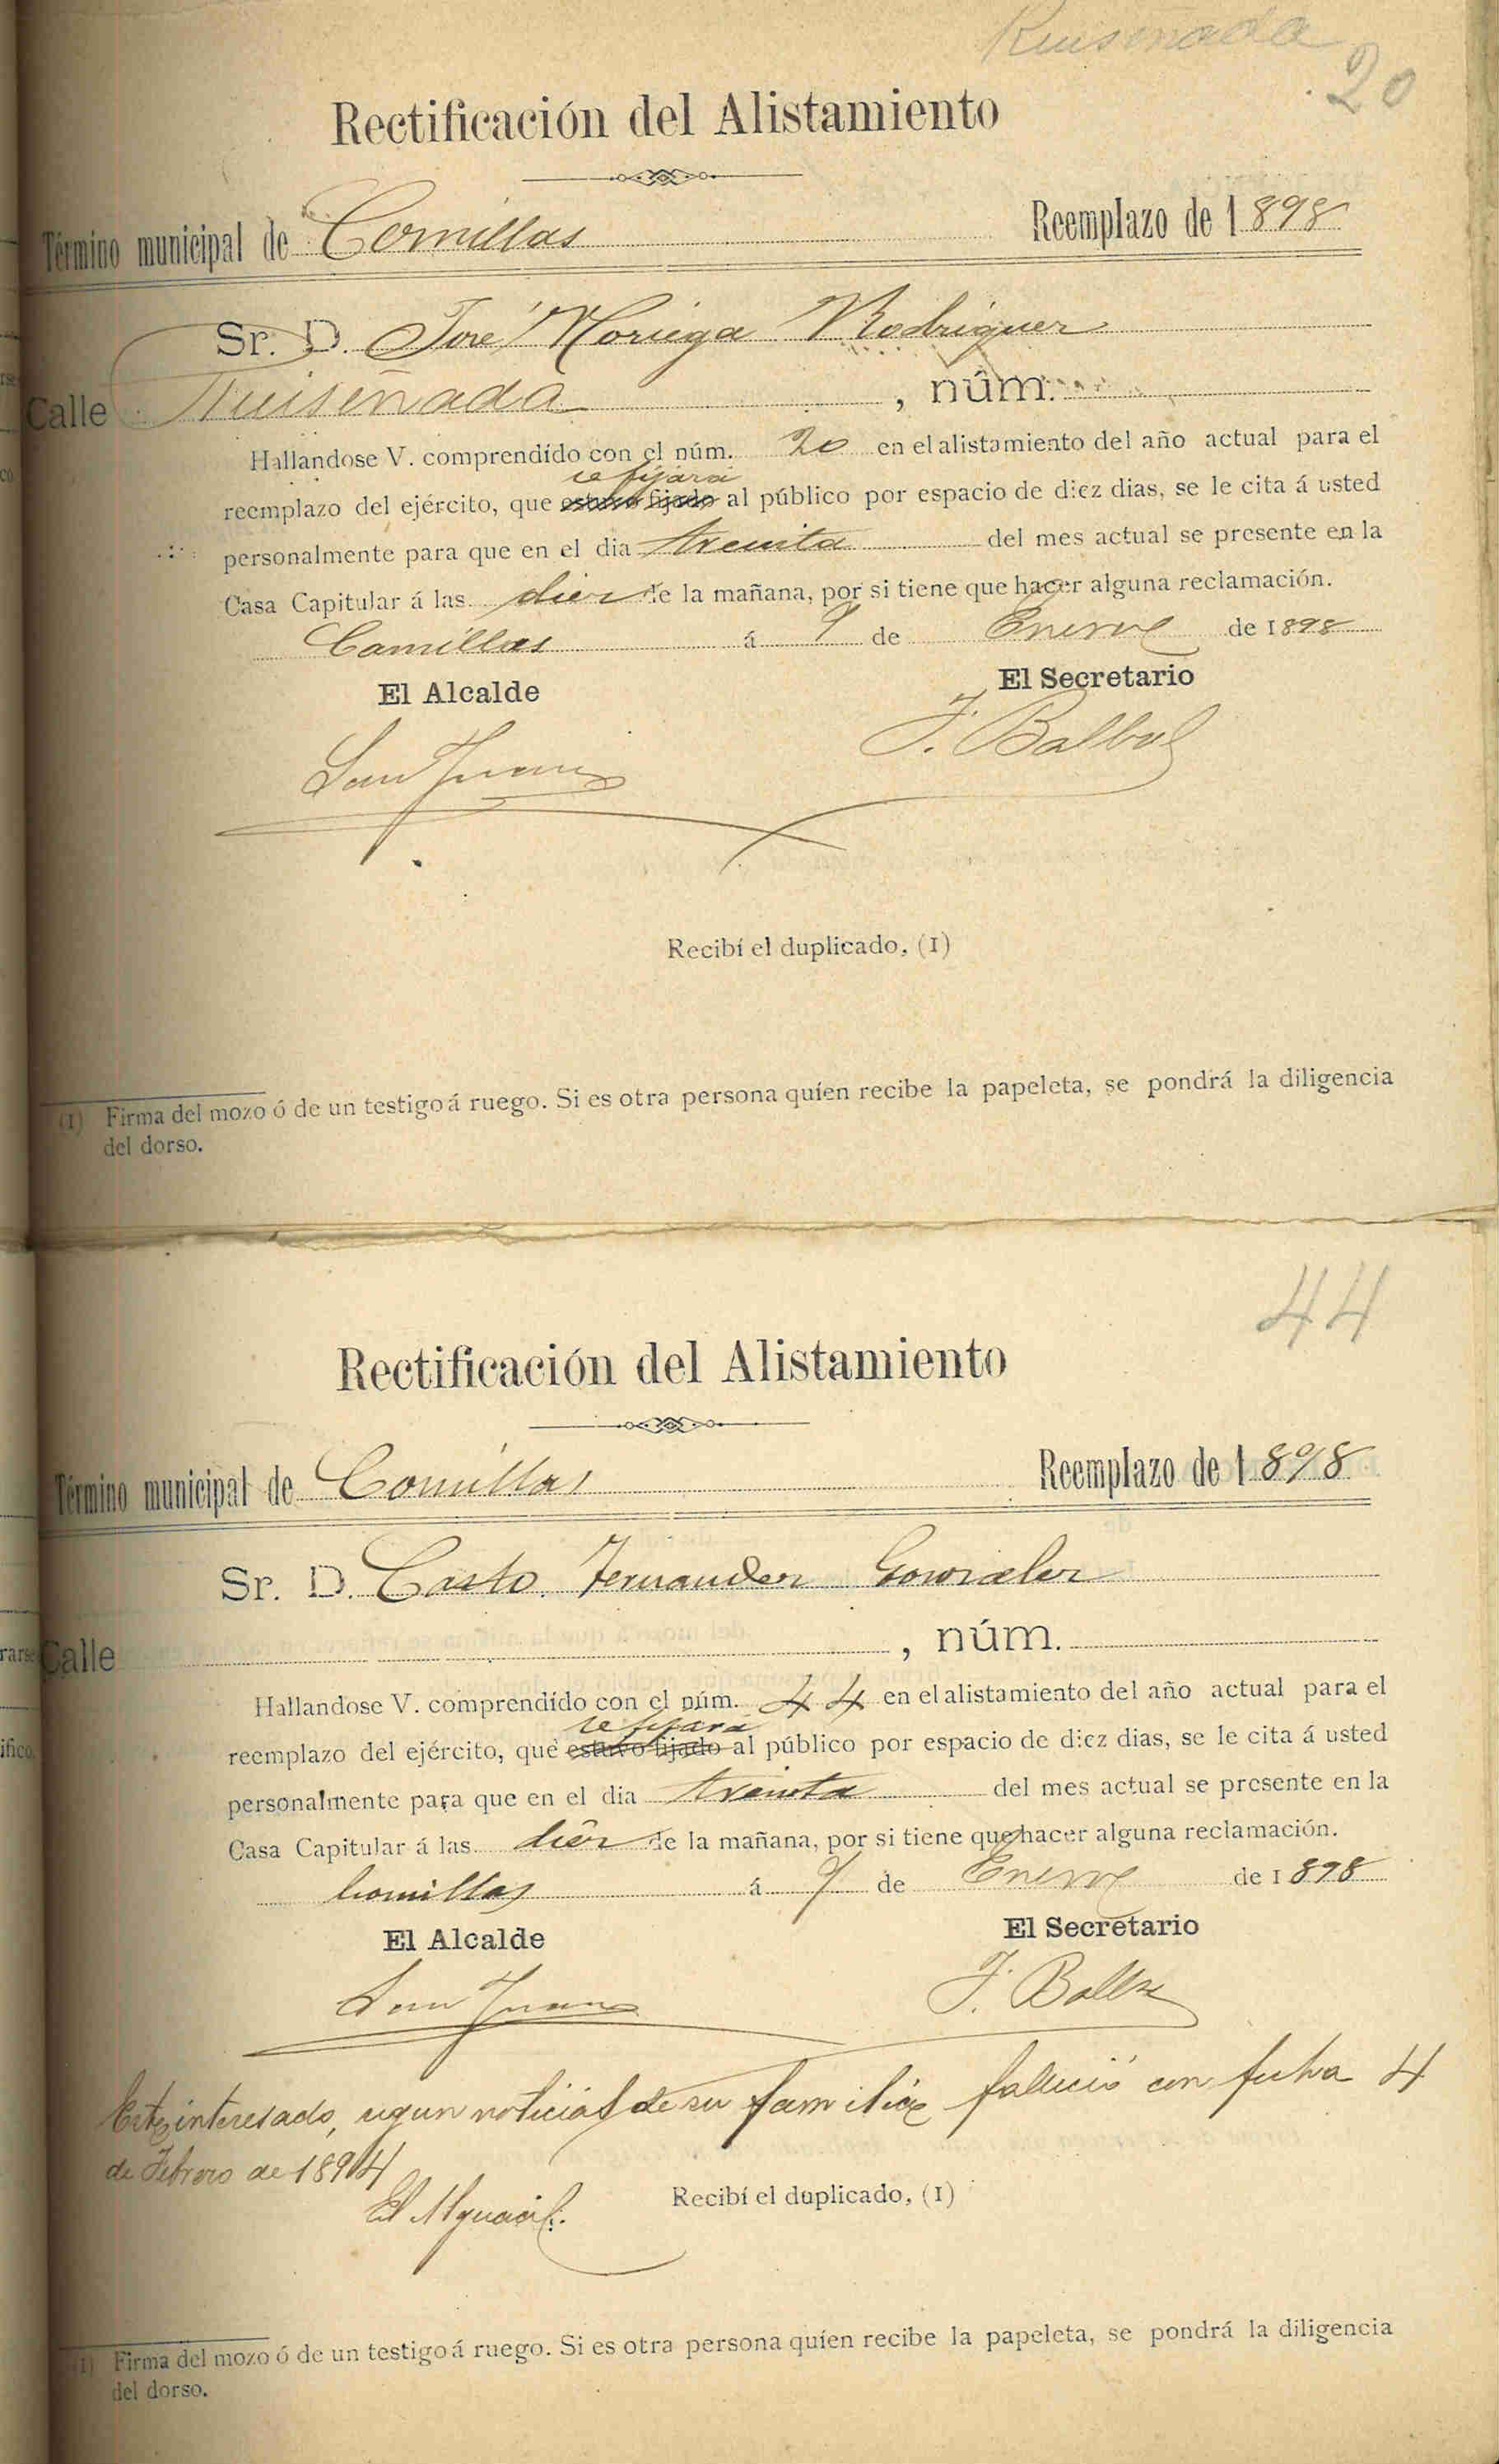 Ruiseñada
20
Rectificación del Alistamiento
Término municipal de Comillas Reemplazo de 1898
Sr. D. José Noriega Rodriguez
Calle Ruiseñada , núm.
Hallandose V. comprendido con el núm. 20 en el alistamiento del año actual para el
se fijará
reemplazo del ejército, que estuvo fijado al público por espacio de diez dias, se le cita á usted
personalmente para que en el dia treinta del mes actual se presente en la
Casa Capitular á las diez de la mañana, por si tiene que hacer alguna reclamación.
Comillas á 9 de Enero de 1898
El Alcalde El Secretario
San Juan J. Balbas
Recibí el duplicado, (1)
(1) Firma del mozo ó de un testigo á ruego. Si es otra persona quíen recibe la papeleta, se pondrá la diligencia
del dorso.
44
Rectificación del Alistamiento
Término municipal de Comillas Reemplazo de 1898
Sr. D. Casto Fernandez Gonzalez
Calle , núm.
Hallandose V. comprendido con el núm. 44 en el alistamiento del año actual para el
se fijara
reemplazo del ejército, que estuvo fijado al público por espacio de diez dias, se le cita á usted
personalmente para que en el dia treinta del mes actual se presente en la
Casa Capitular á las diez de la mañana, por si tiene que hacer alguna reclamación.
Comillas á 9 de Enero de 1898
El Alcalde El Secretario
San Juan J.
Este interesado, segun noticias de su familia falleció con fecha 4
de Febrero de 1894
El Alguacil:
Recibí el duplicado, (1)
(1) Firma del mozo ó de un testigo á ruego. Si es otra persona quíen recibe la papeleta, se pondrá la diligencia
del dorso.